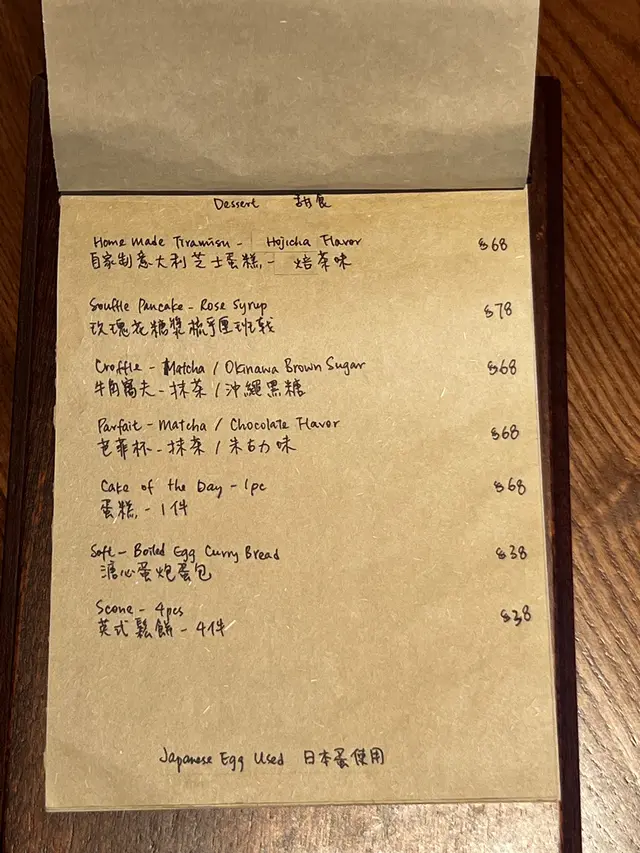 Dessert 甜食
Home Made Tiramisu - Hojicha Flavor $68
自家制意大利芝士蛋糕 - 焙茶味
Souffle Pancake - Rose Syrup $78
玫瑰花糖漿梳乎厘班戟
Croffle - Matcha / Okinawa Brown Sugar $68
牛角窩夫 - 抹茶 / 沖繩黑糖
Parfait - Matcha / Chocolate Flavor $68
芭菲杯 - 抹茶 / 朱古力味
Cake of the Day - 1pc $68
蛋糕 - 1件
Soft - Boiled Egg Curry Bread $38
溏心蛋炮蛋包
Scone - 4pcs $38
英式鬆餅 - 4件
Japanese Egg Used 日本蛋使用